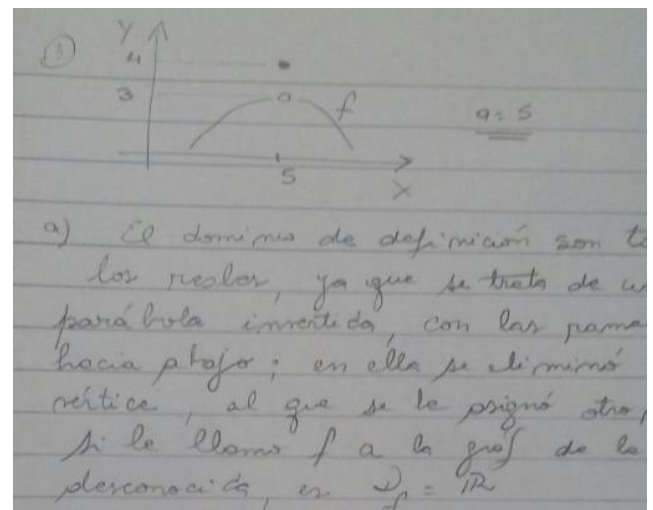 ③
Y
4
3
f
a = 5
5
X
a) El dominio de definición son to
los reales, ya que se trata de un
parábola invertida, con las rama
hacia abajo; en ella se eliminó
vértice, al que se le asignó otro,
si le llamo f a la gráf de la
desconocida, es D_f = ℝ